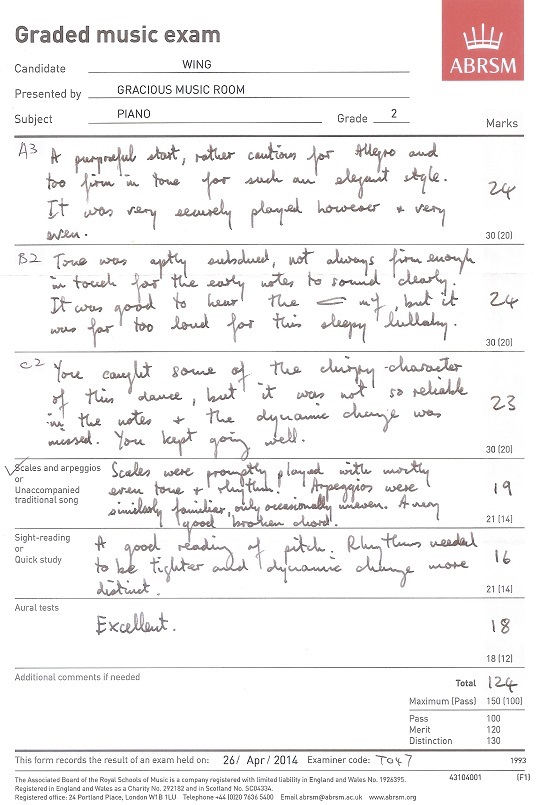 Graded music exam
ABRSM
Candidate WING
Presented by GRACIOUS MUSIC ROOM
Subject PIANO Grade 2
Marks
A3 A purposeful start, rather cautious for Allegro and
too firm in tone for such an elegant style.
It was very securely played however + very
even.
24
30 (20)
B2 Tone was aptly subdued, not always firm enough
in touch for the early notes to sound clearly.
It was good to hear the < mf, but it
was far too loud for this sleepy lullaby.
24
30 (20)
C2 You caught some of the chirpy character
of this dance, but it was not so reliable
in the notes + the dynamic change was
missed. You kept going well.
23
30 (20)
✓ Scales and arpeggios
or
Unaccompanied
traditional song
Scales were promptly played with mostly
even tone + rhythm. Arpeggios were
similarly familiar, only occasionally uneven. A very
good broken chord.
19
21 (14)
Sight-reading
or
Quick study
A good reading of pitch. Rhythms needed
to be tighter and dynamic change more
distinct.
16
21 (14)
Aural tests
Excellent.
18
18 (12)
Additional comments if needed
Total 124
Maximum (Pass) 150 (100)
Pass 100
Merit 120
Distinction 130
This form records the result of an exam held on: 26/ Apr / 2014 Examiner code: T047 1993
The Associated Board of the Royal Schools of Music is a company registered with limited liability in England and Wales No. 1926395. 43104001 (F1)
Registered in England and Wales as a Charity No. 292182 and in Scotland No. SC04334.
Registered office: 24 Portland Place, London W1B 1LU Telephone +44 (0)20 7636 5400 Email abrsm@abrsm.ac.uk www.abrsm.org